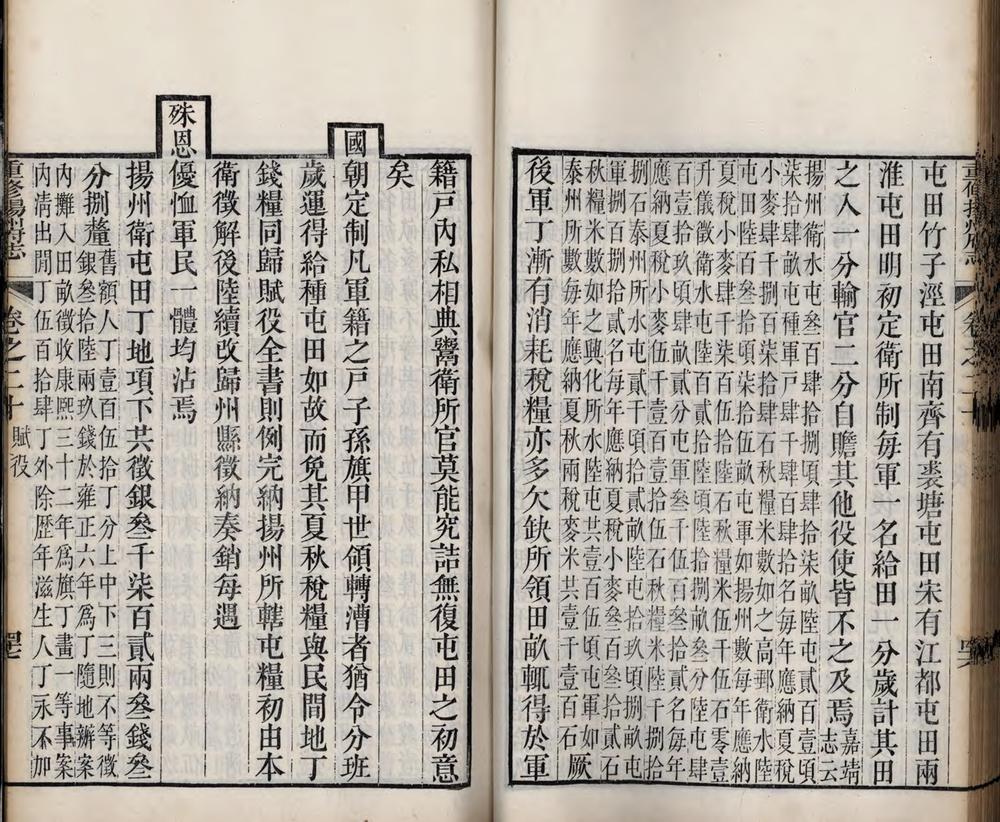 屯田竹子涇屯田南齊有裘塘屯田宋有江都屯田兩
淮屯田明初定衛所制每軍一名給田一分歲計其田
之入一分輸官二分自贍其他役使皆不之及焉嘉靖
志云
揚州衛水屯叁百肆拾捌頃肆拾柒畝陸屯貳百壹頃
柒拾肆畝屯種軍戸肆千肆百肆拾名每年應納夏稅
小麥肆千捌百柒拾肆石秋糧米數如之高郵衛水陸
屯田陸百叁拾頃柒拾伍畝屯軍如揚州數每年應納
夏稅小麥肆千柒百伍拾陸石秋糧米伍千伍石零壹
升儀徵衛水屯百貳拾陸頃陸拾捌畝叁分陸屯肆
百壹拾玖頃肆畝貳分屯軍叁千伍百叁拾貳名每年
應納夏稅小麥伍千壹百壹拾伍石秋糧米陸千捌拾
捌石泰州所水屯貳千頃拾貳畝陸屯拾玖頃捌畝屯
軍百捌拾貳名每年應納夏稅小麥叁百叁拾貳石
秋糧米數如之興化所水陸屯共壹百伍頃屯軍如
泰州所數每年應納夏秋兩稅麥米共壹千壹百石
厥
後軍丁漸有消耗稅糧亦多欠缺所領田畝輒得於軍
籍戸內私相典鬻衛所官莫能究詰無復屯田之初意
矣
國朝定制凡軍籍之戸子孫旗甲世領轉漕者猶令分班
歲運得給種屯田如故而免其夏秋稅糧與民間地丁
錢糧同歸賦役全書則例完納揚州所轄屯糧初由本
衛徵解後陸續改歸州縣徵納奏銷每遇
殊恩優恤軍民一體均沾焉
揚州衛屯田丁地項下共徵銀叁千柒百貳兩叁錢叁
分捌釐舊額人丁壹百伍拾丁分上中下三則不等徵
銀叁拾陸兩玖錢於雍正六年爲丁隨地辦案
內攤入田畝徵收康熙三十二年爲旗丁畫一等事案
內清出閒丁伍百拾肆丁外除歷年滋生人丁永不加
重修揚州府志 卷之二十 賦役